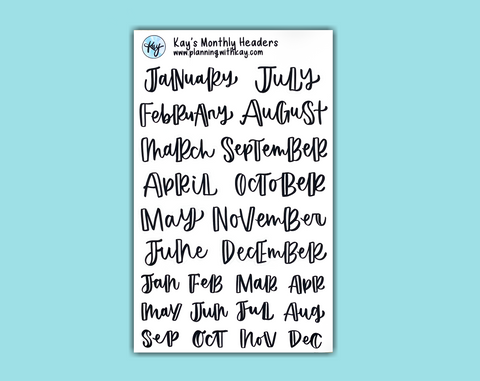 Kay
Kay's Monthly Headers
www.planningwithkay.com
January July
February August
March September
April October
May November
June December
Jan Feb Mar Apr
May Jun Jul Aug
Sep Oct Nov Dec